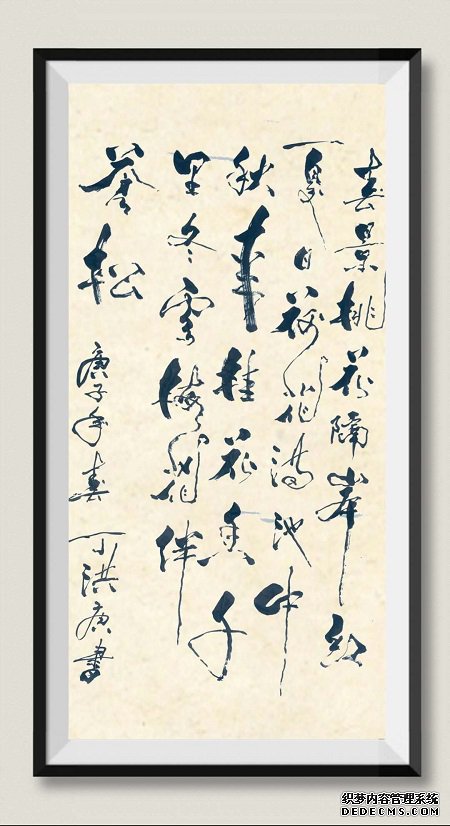 春景桃花隔岸红
夏日荷花满池中
秋季桂花香千
里冬雪梅花伴
苍松
庚子年春 丁洪庚书
织梦内容管理系统
DEDECMS.COM